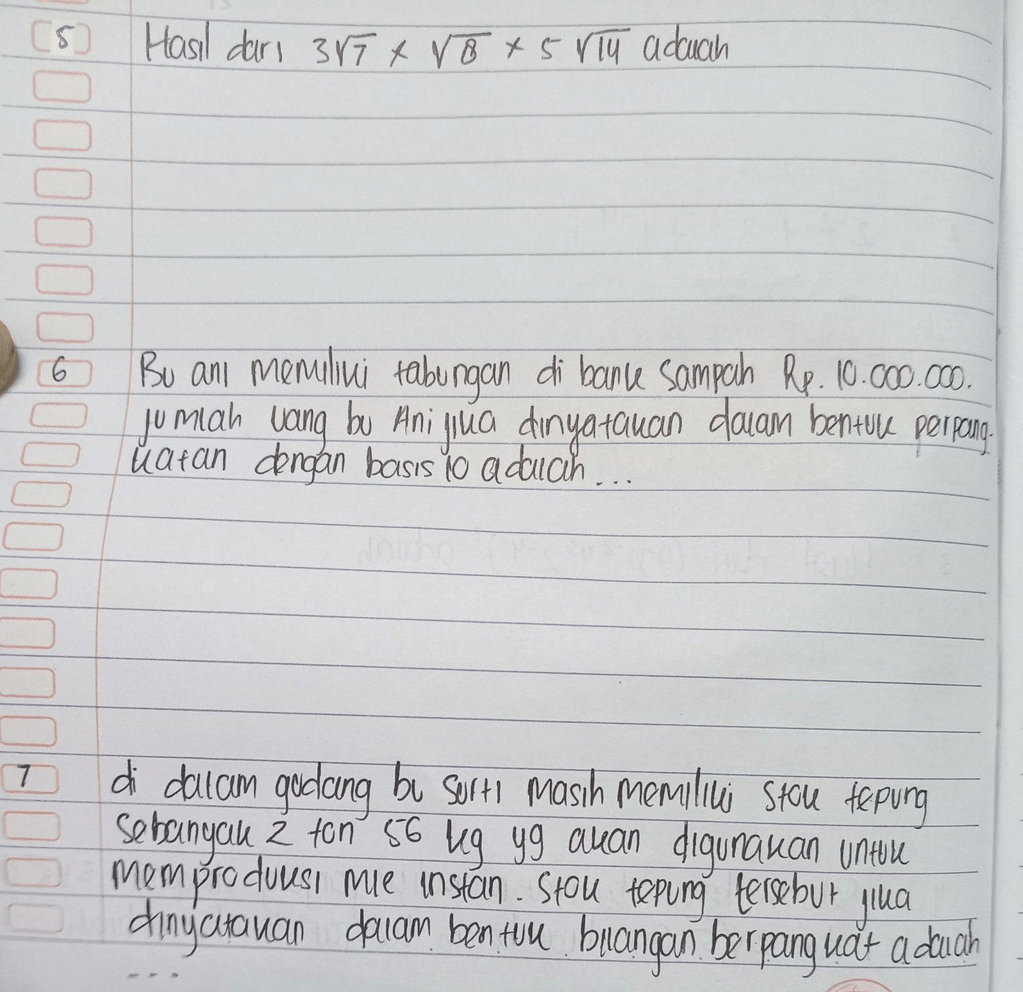 5 Hasil dari 3√7 × √8 × 5 √14 adalah
6 Bu ani memiliki tabungan di bank sampah Rp. 10.000.000.
jumlah uang bu Ani jika dinyatakan dalam bentuk perpang-
katan dengan basis 10 adalah ...
7 di dalam gudang bu surti masih memiliki stok tepung
sebanyak 2 ton 56 kg yg akan digunakan untuk
memproduksi mie instan. stok tepung tersebut jika
dinyatakan dalam bentuk bilangan berpangkat adalah
...